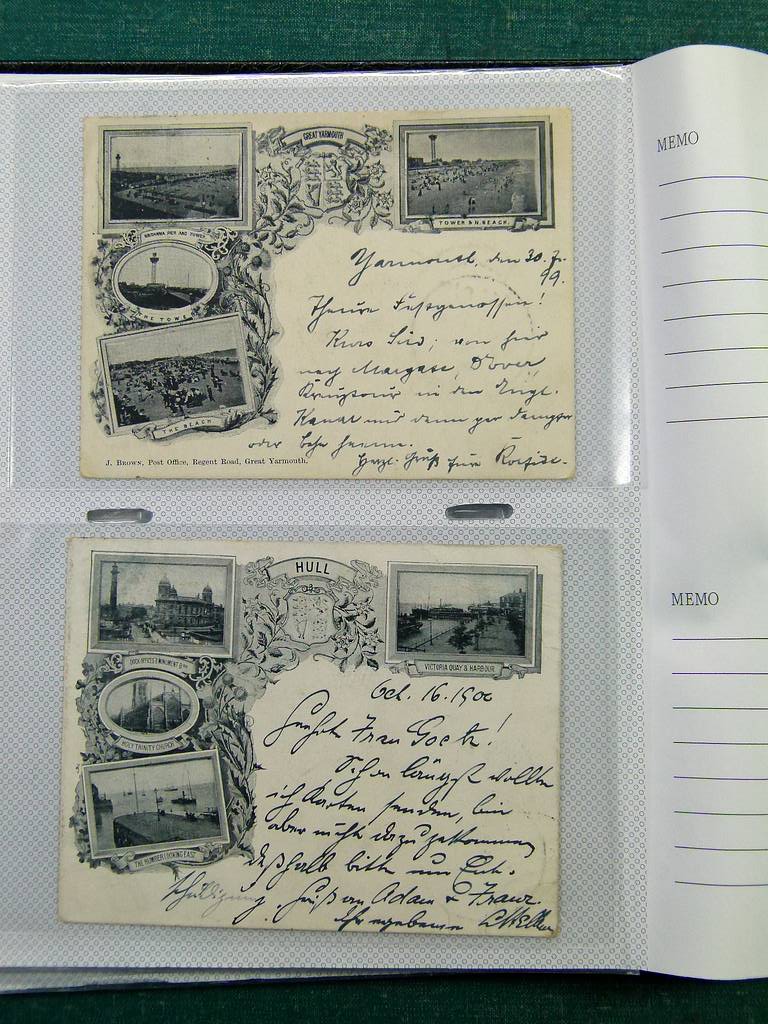 MEMO
GREAT YARMOUTH
BRITANNIA PIER AND TOWER
TOWER & N. BEACH.
THE TOWER
THE BEACH
J. BROWN, Post Office, Regent Road, Great Yarmouth.
Yarmouth, den 30. 7.
99.
Theure Festgenossen!
Kurs Süd; von hier
nach Margate, Dover
in den Engl.
Kanal und dann per Dampfer
oder Bahn heim.
Herzl. Gruß
MEMO
HULL
DOCK OFFICES & MONUMENT
VICTORIA QUAY & HARBOUR
HOLY TRINITY CHURCH
THE HUMBER LOOKING EAST
Oct. 16. 1900
Geehrte Frau Goetz!
Schon längst wollte
ich Karten senden, bin
aber nicht dazu gekommen
deßhalb bitte um Ent-
schuldigung. Gruß an Adam & Franz